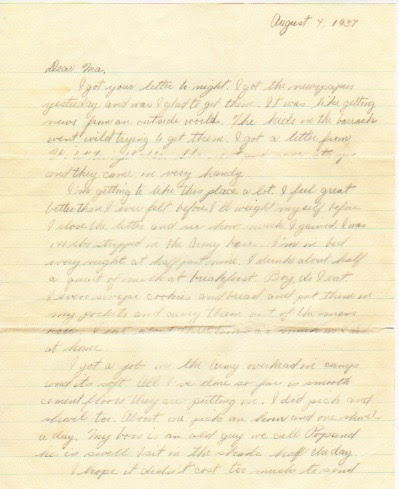 August 7, 1937
Dear Ma,
I got your letter to night. I got the newspapers
yesterday and was I glad to get them. It was like getting
news from an outside world. The kids in the barracks
went wild trying to get them. I got a letter from
and they came in very handy.
I'm getting to like this place a lot. I feel great
better than I ever felt before. I'll weight myself before
I close the letter and see how much I gained. I was
stripped in the Army
I'm in bed
every night at half past nine. I drink about half
a quart of milk at breakfast. Boy do I eat.
I even swipe cookies and bread and put them in
my pockets and carry them out of the mess
hall. I eat about three times as much as I did
at home.
I got a job in the Army overhead in camp
and its soft. All I've done so far is smooth
cement floors they are putting in. I did pick and
shovel too. About one pick an hour and one shovel
a day. My boss is an old guy we call Pop and
he is swell. I sit in the shade half the day.
I hope it didn't cost too much to send